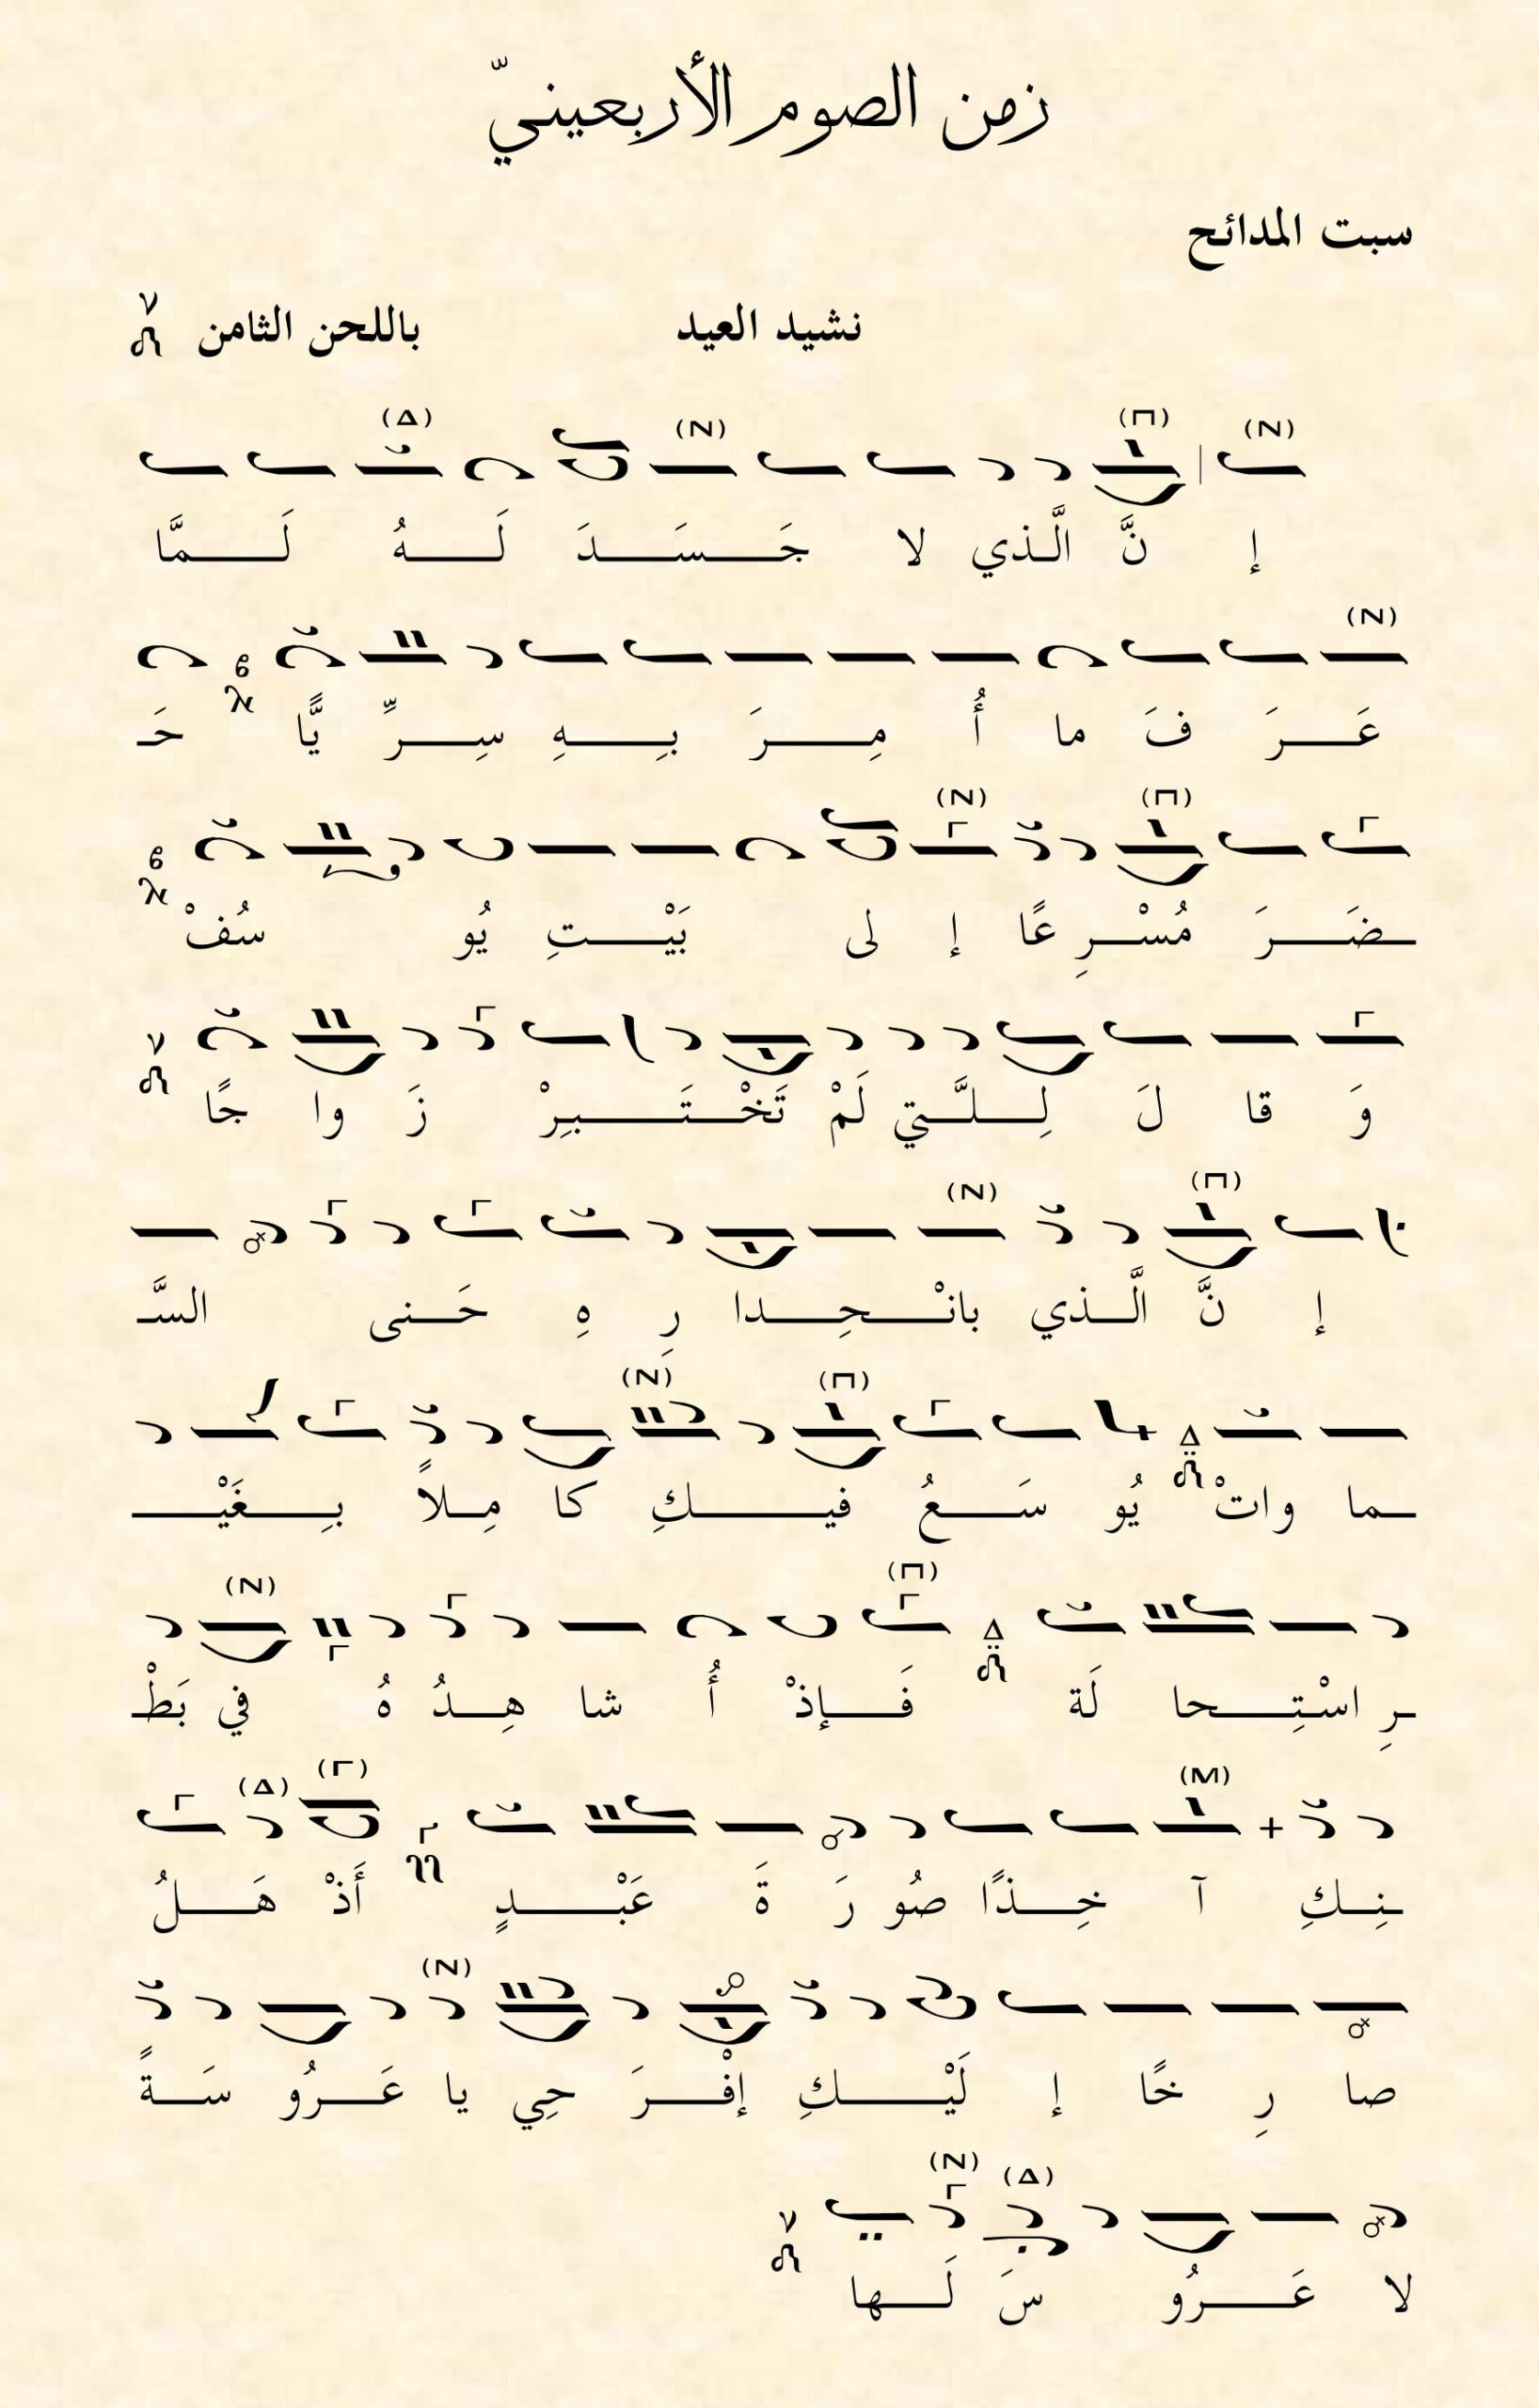 زمن الصوم الأربعينيّ
سبت المدائح
نشيد العيد باللحن الثامن
(N) (Π) (N) (Δ)
إ نَّ الَّـذي لا جَــسَــدَ لَــهُ لَــمَّا
(N)
عَــرَ فَ ما أُ مِــرَ بِــهِ سِــرِّ يًّا حَـ
(Π) (N)
ـضَــرَ مُسْــرِ عًا إ لى بَيْــتِ يُو سُفْ
وَ قا لَ لِــلــَّتي لَمْ تَخْــتَــبِرْ زَ وا جًا
(Π) (N)
إ نَّ الَّــذي بانْــحِــدا رِ هِ حَــنى السَّـ
(Π) (N)
ـما واتْ يُو سَــعُ فيــكِ كا مِــلاً بِــغَيْــ
(Π) (N)
ـرِ اسْتِــحا لَة فَــإذْ أُ شا هِــدُ هُ في بَطْـ
(M) (Γ) (Δ)
ـنِــكِ آ خِــذًا صُو رَ ةَ عَبْــدٍ أَذْ هَــلُ
(N)
صا رِ خًا إ لَيْــكِ إفْــرَ حِي يا عَــرُو سَــةً
(Δ) (N)
لا عَــرُو سَ لَــها